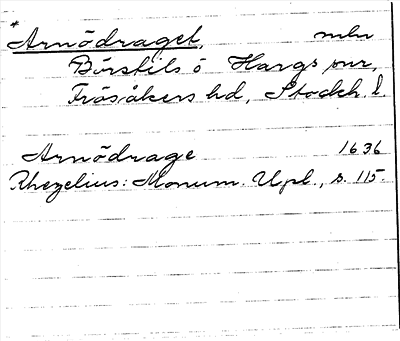 * Arnödraget, mbn
Börstils o Hargs snr,
Frösåkers hd, Stockh. l.
Arnödrage 1636
Rhezelius: Monum. Upl., s. 115.